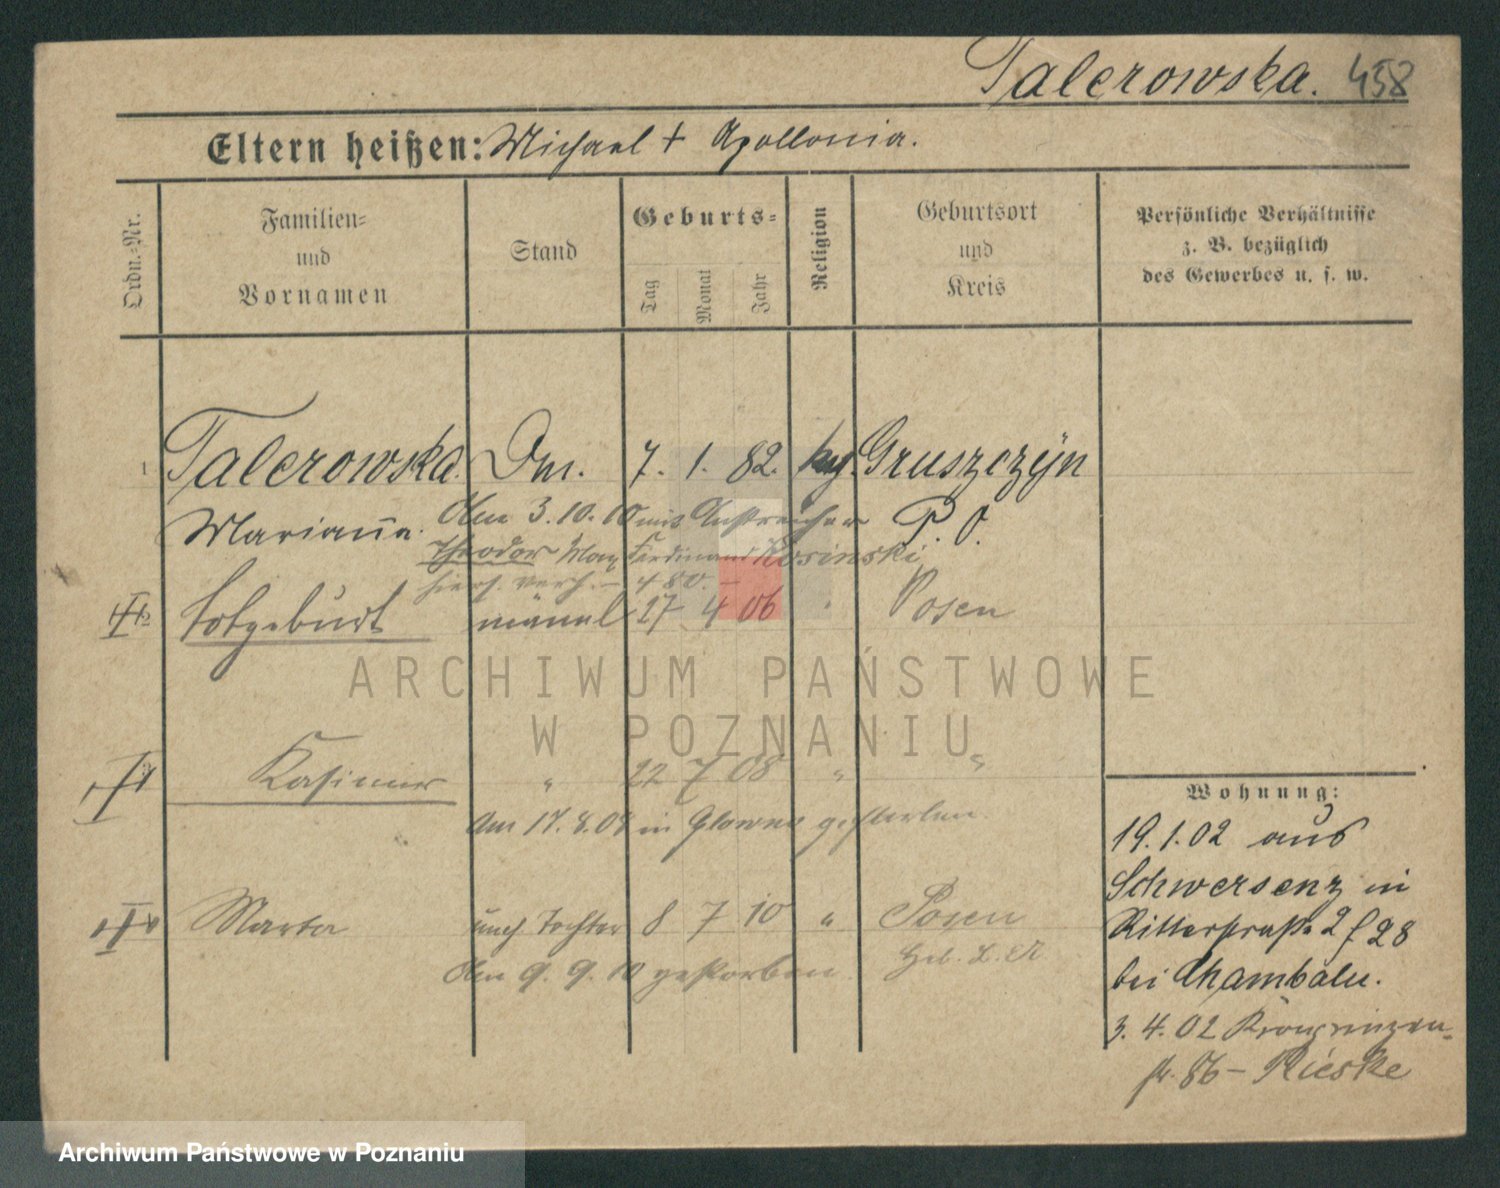 Talerowska. 458
Eltern heißen: Michael + Apollonia.
Ordn.-Nr.
Familien-
und
Vornamen
Stand
Geburts-
Tag
Monat
Jahr
Religion
Geburtsort
und
Kreis
Persönliche Verhältnisse
z. B. bezüglich
des Gewerbes u. s. w.
1 Talerowska. Dm. 7. 1. 82. Gruszczyn
Marianna. P. O.
Am 3.10.10 mit Anstreicher
Theodor Max Ferdinand Rosinski
hies. verh. – 480. –
Totgeburt männl 27 4 06 " Posen
ARCHIWUM PAŃSTWOWE
W POZNANIU
Kasimir " 22 7 08 " "
Am 17.8.08 in Glowno gestorben.
Marta unehl Tochter 8 7 10 " Posen
Am 9. 9. 10 gestorben.
Wohnung:
19.1.02 aus
Schwersenz in
Ritterstraße 2 f 28
bei
3.4.02 Kronprinzen-
str. 86 – Rieske
Archiwum Państwowe w Poznaniu